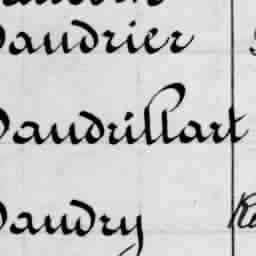 Vaudrier
Vaudrillart
Vaudry